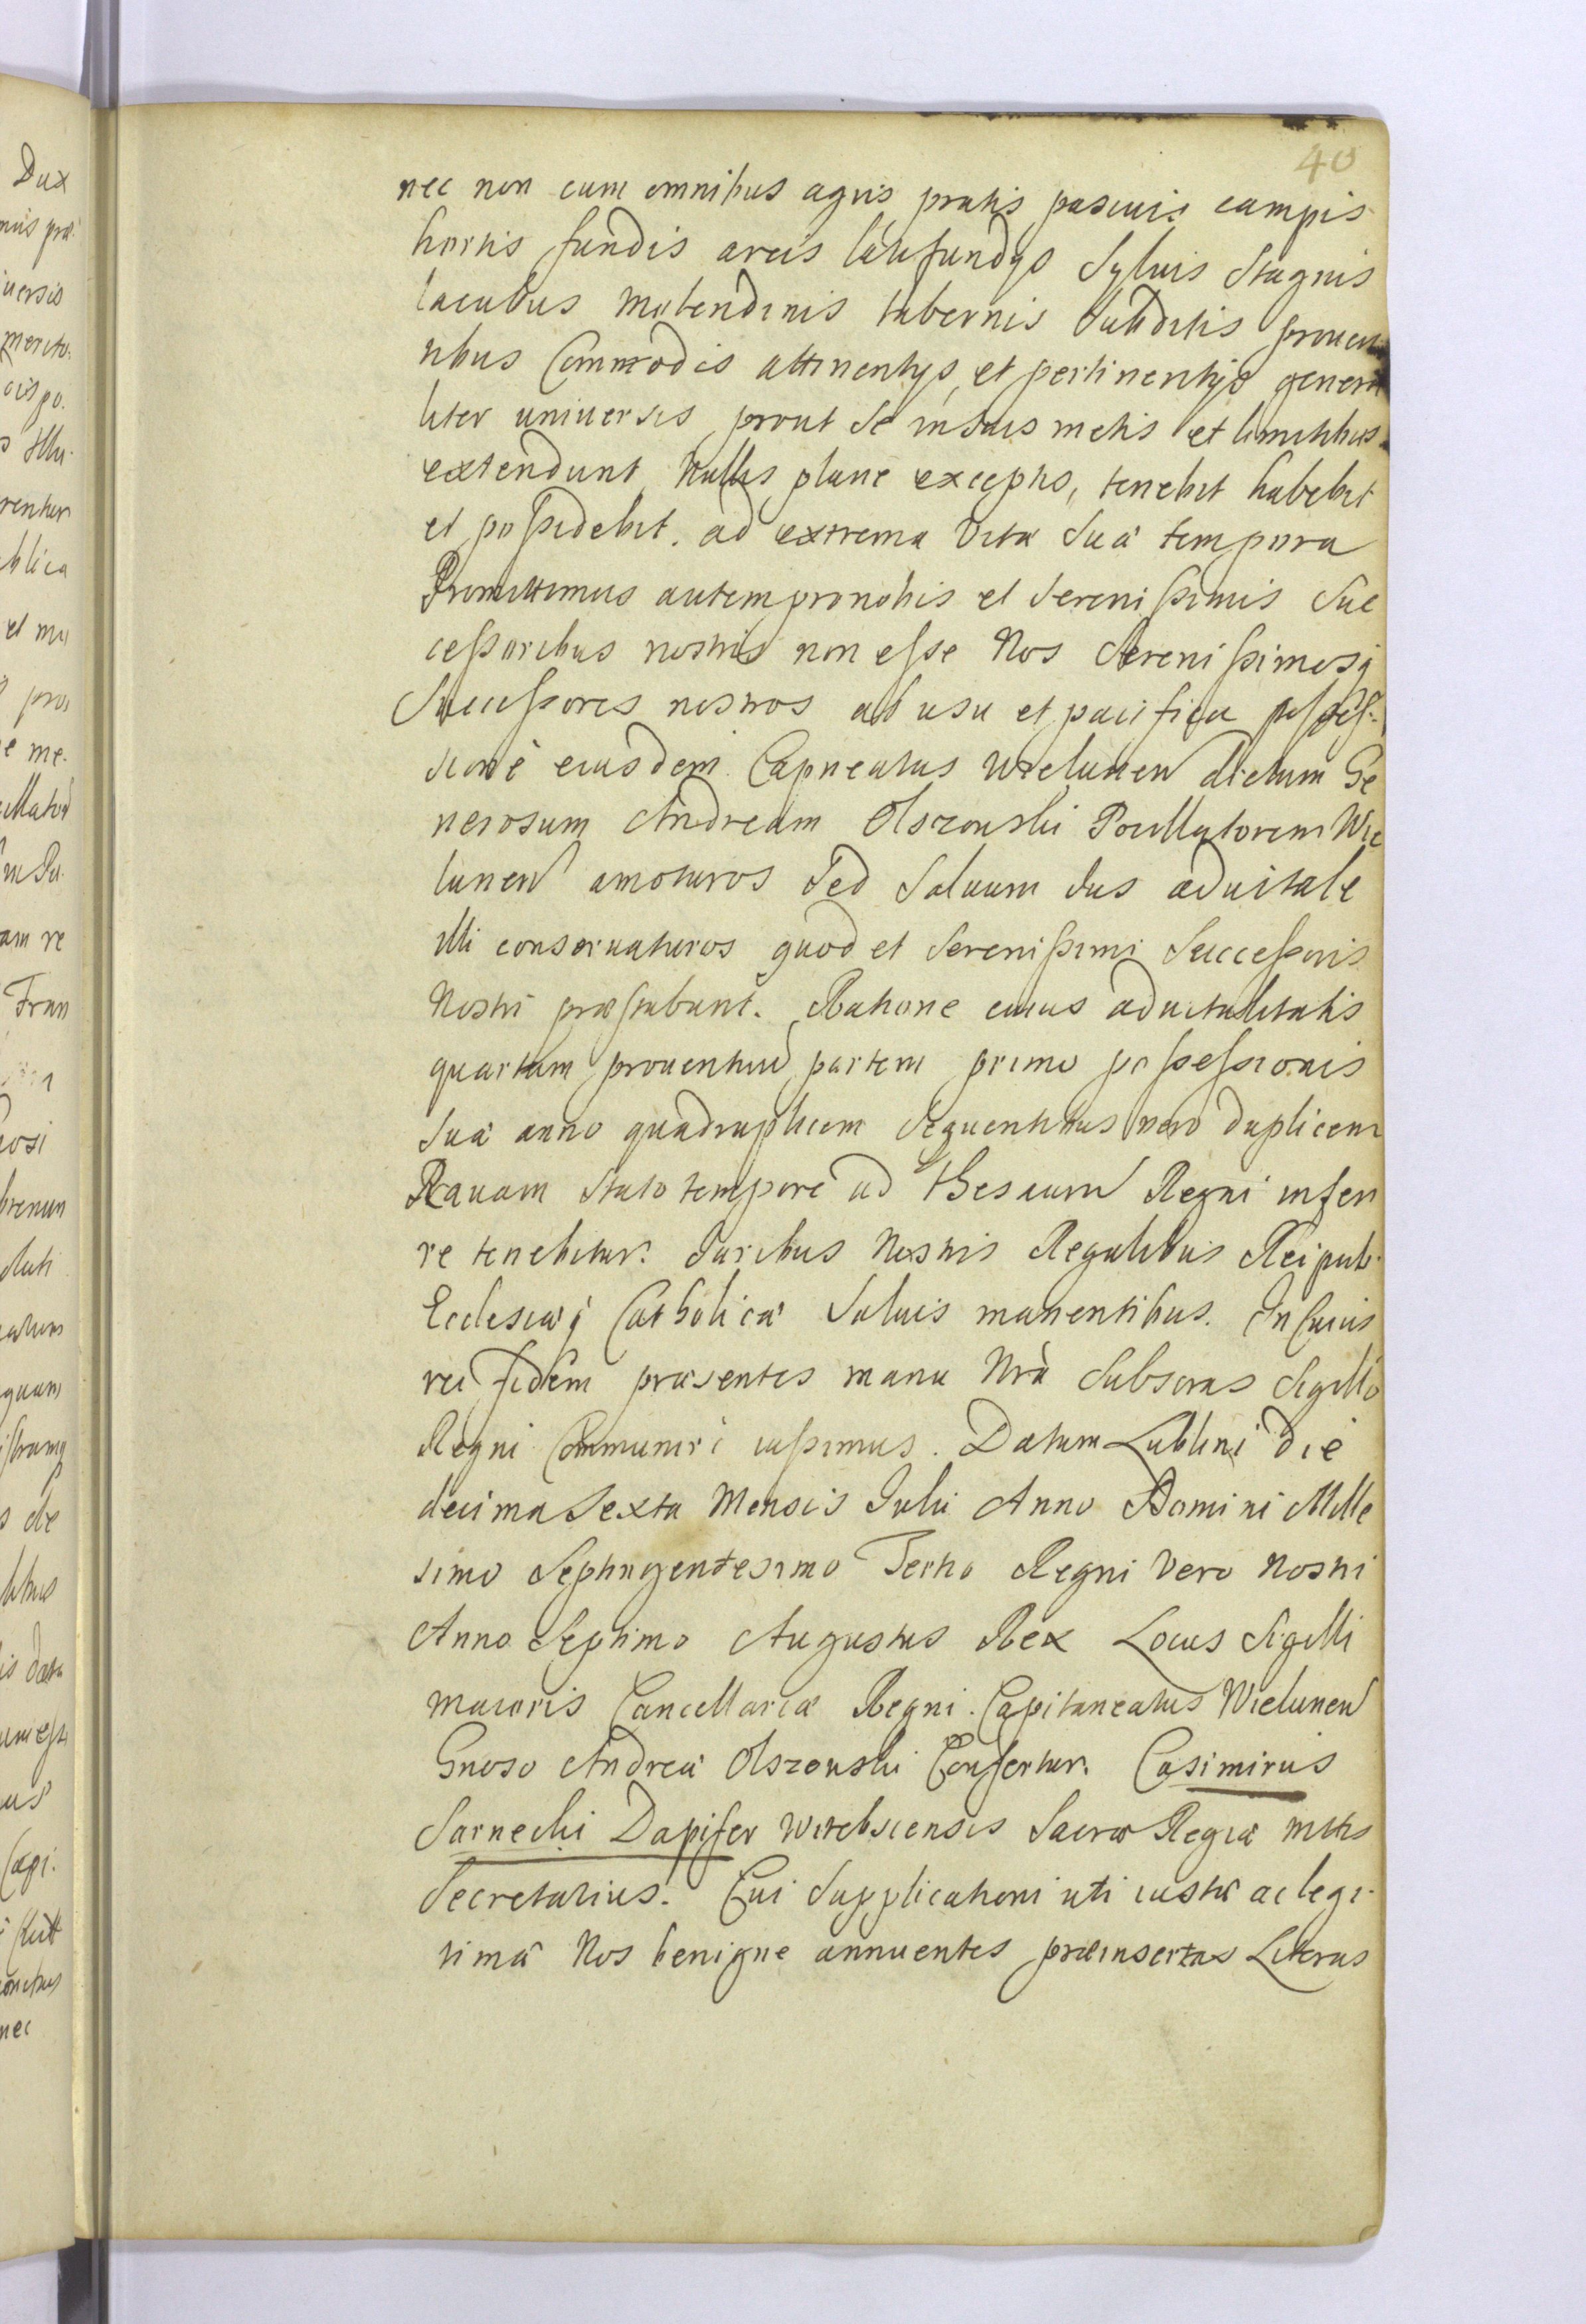 40
nec non cum omnibus agris pratis pascuis campis
hortis fundis areis latifundys Sylvis Stagnis
lacubus Molendinis tabernis Subditis proven
tibus Commodis attinentys et pertinentys genera
liter universis prout Se in suis metis et limitibus
extendunt Nullis plane exceptis, tenebit habebit
et possidebit. ad extrema Vitæ Suæ tempora
Promittimus autem pro nobis et Serenissimis Suc
cessoribus nostris non esse Nos Serenissimosq
Successores nostros ab usu et pacifica posses-
sione eiusdem Capneatus Wielunen dictum Ge
nerosum Andream Olszouski Pocillatorem Wie
lunen amoturos Sed Salvum Ius advitale
illi conservaturos quod et Serenissimi Successoris
Nostri præstabunt. Ratione cuius advitalitatis
quartam proventuu partem primo possessionis
Suæ anno quadruplicem Sequentibus vero duplicem
Ravam Stato tempore ad thesaurū Regni infer
re tenebitur. Iuribus Nostris Regalibus Reipub.
Ecclesiæq Catholicæ Salvis manentibus. In Cuius
rei fidem præsentes manu Nrà Subscras Sigillo
Regni Communiri iussimus. Datum Lublini die
decima Sexta Mensis Iulii Anno Domini Mille
simo Septingentesimo Tertio Regni Vero Nostri
Anno Septimo Augustus Rex Locus Sigilli
maioris Cancellariæ Regni. Capitaneatus Wielunen
Gnoso Andreæ Olszouski Confertur. Casimirus
Sarnecki Dapifer Witebsciensis Sacræ Regiæ Mttis
Secretarius. Cui Supplicationi uti iustæ ac legi-
timæ Nos benigne annuentes præinsertas Literas